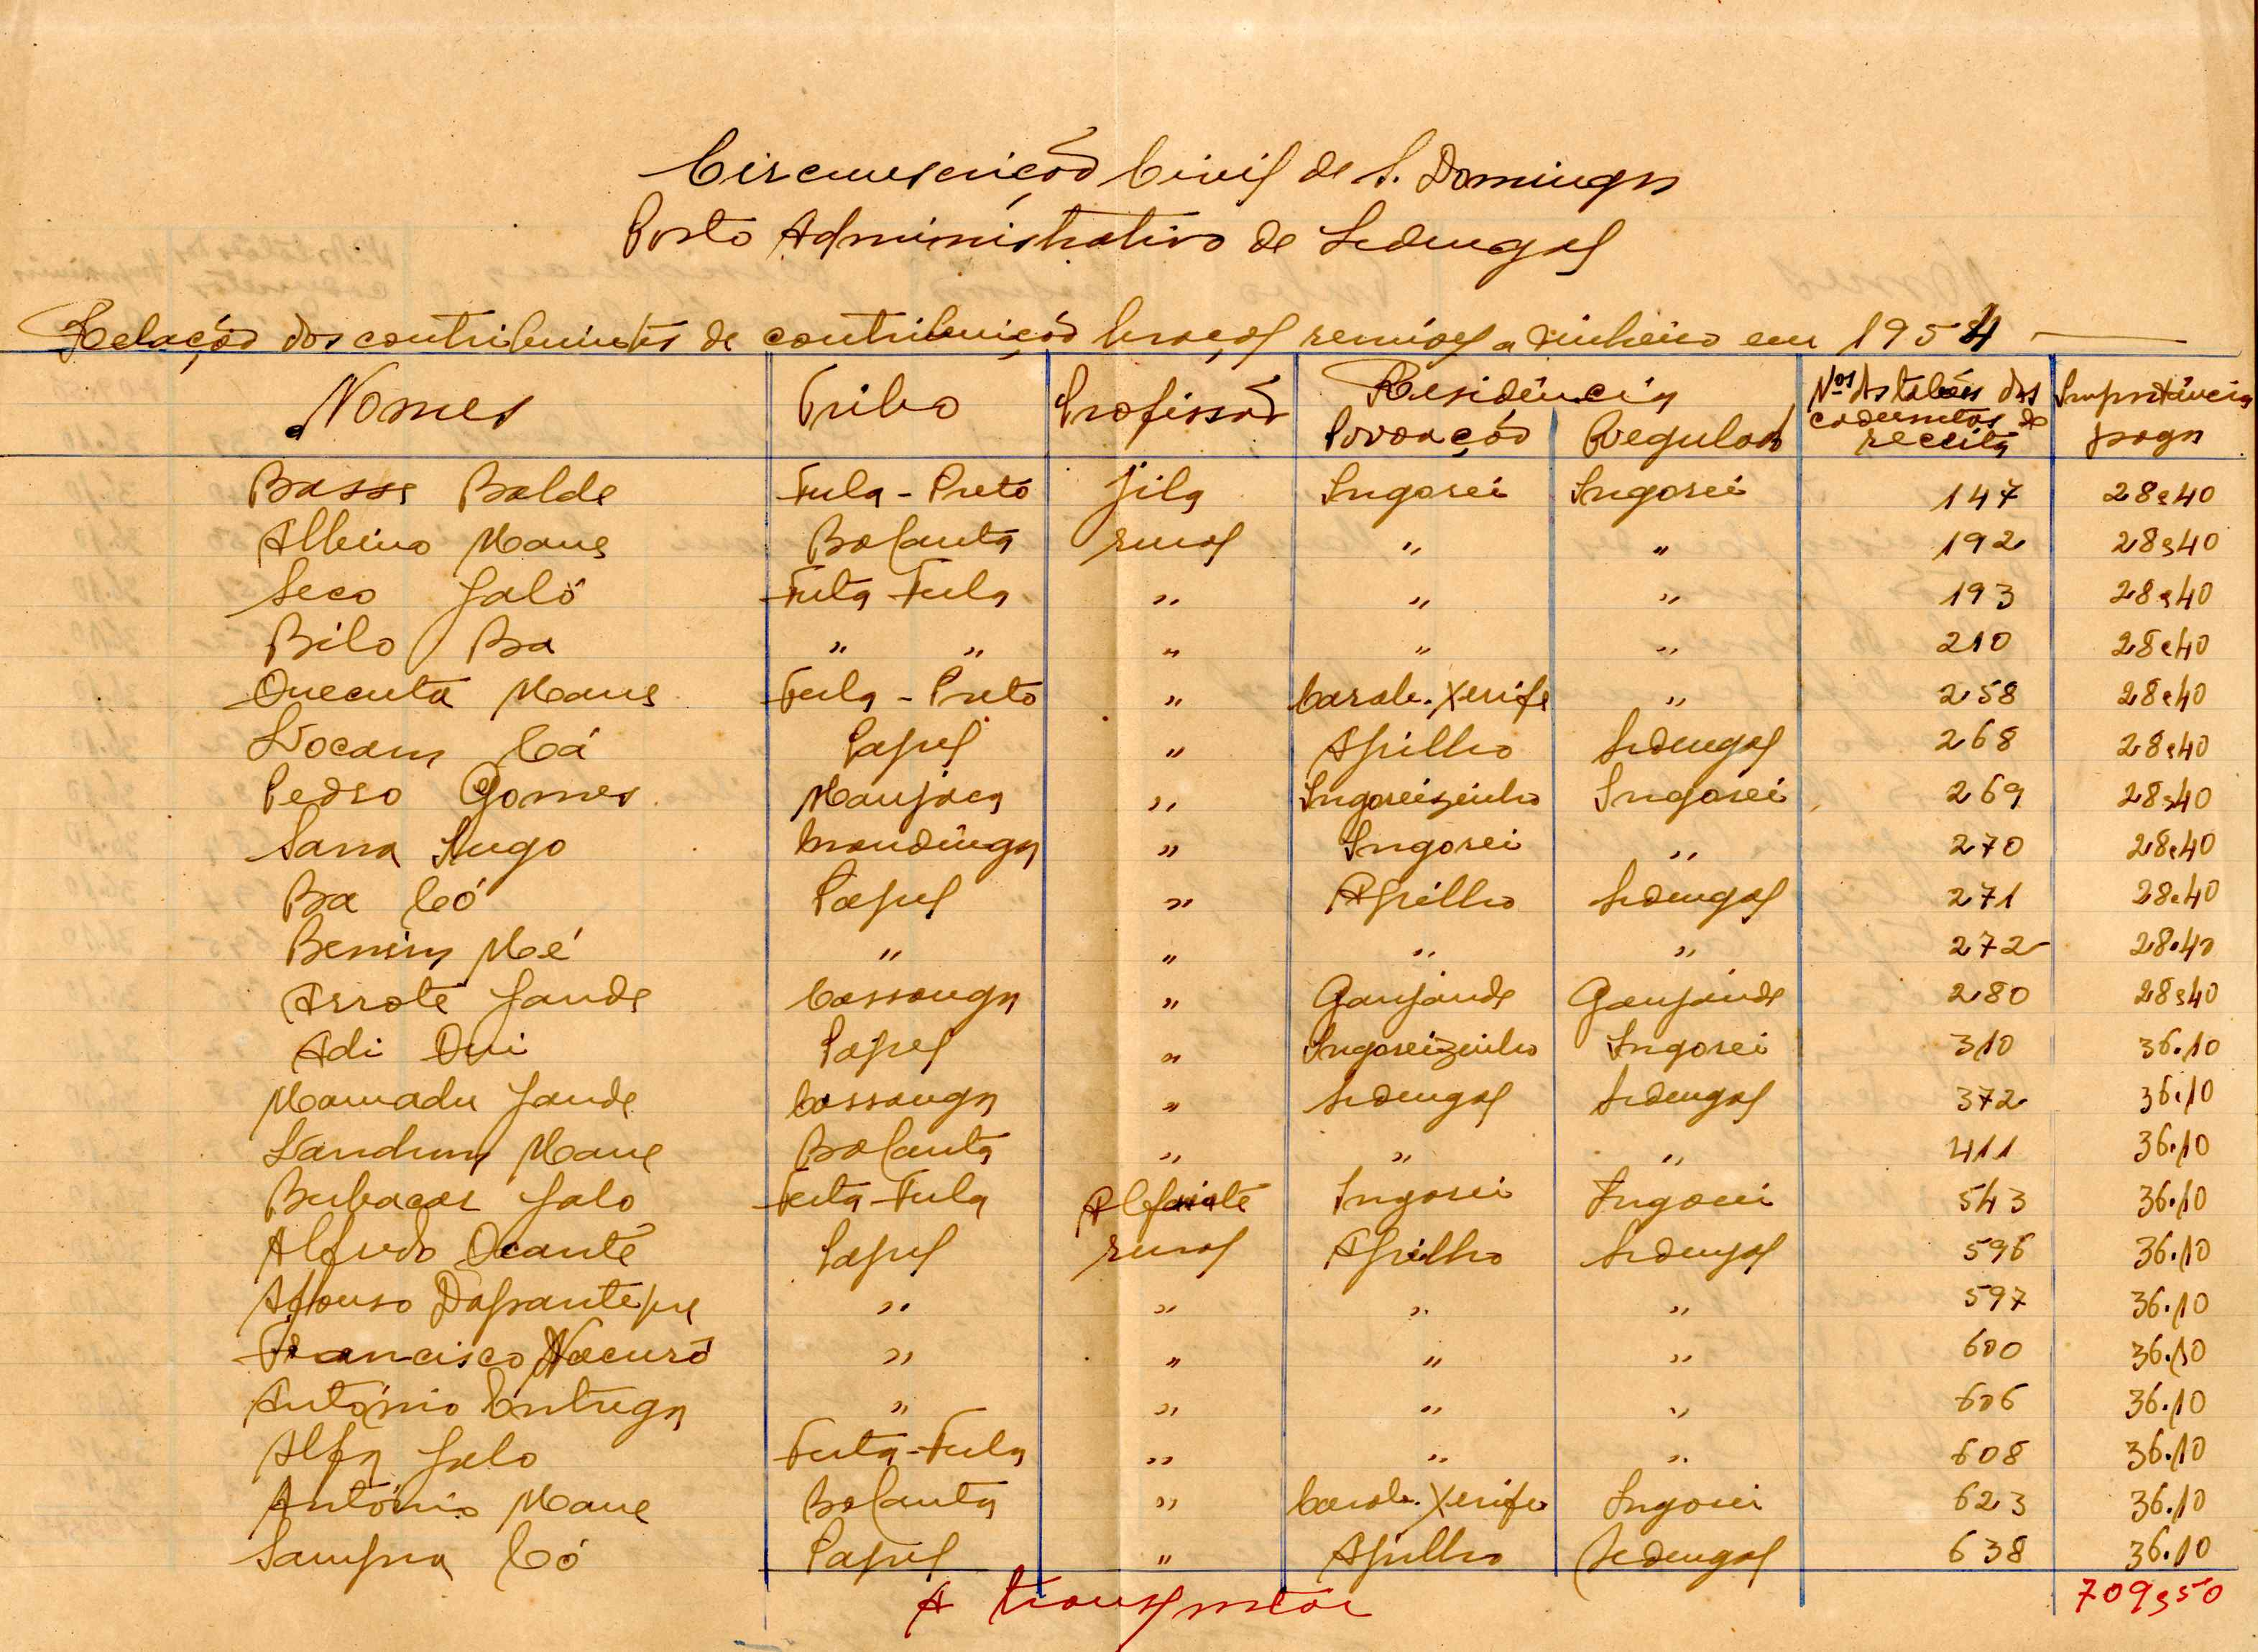 Circunscrição Civil de S. Domingos
Posto Administrativo de Sedengal
Relação dos contribuintes de contribuição braçal remíveis a dinheiro em 1954
Nomes Tribo Profissão Residência Nos dos talões das cadernetas de receita Importância paga
Povoação Regulado
Basse Balde Fula - Preto jila Ingorei Ingorei 147 28$40
Albino Mane Balanta rural " " 192 28$40
Seco Jaló Futa Fula " " " 193 28$40
Bilo Ba " " " " " 210 28$40
Quecuta Mane Fula - Preto " Carab. Xerife " 258 28$40
Docam Cá Papel " Apilho Sedengal 268 28$40
Pedro Gomes Manjaca " Ingoreizinho Ingorei 269 28$40
Sana Sugo Mandinga " Ingorei " 270 28$40
Ba Có Papel " Apilho Sedengal 271 28.40
Benim Mé " " " " 272 28.40
Arrote Jande Cassanga " Ganjande Ganjande 280 28$40
Adi Qui Papel " Ingoreizinho Ingorei 310 36.10
Mamadu Jande Cassanga " Sedengal Sedengal 372 36.10
Landum Mane Balanta " " " 411 36.10
Bubacar Jalo Futa-Fula Alfaiate Ingorei Ingorei 543 36.10
Alfredo Ocante Papel rural Apilho Sedengal 596 36.10
Afonso Dafrantepe " " " " 597 36.10
Francisco Nacuró " " " " 600 36.10
António Entrega " " " " 606 36.10
Alfa Jalo Futa-Fula " " " 608 36.10
António Mane Balanta " Carab. Xerife Ingorei 623 36.10
Sampa Có Papel " Apilho Sedengal 638 36.10
A transportar 709$50